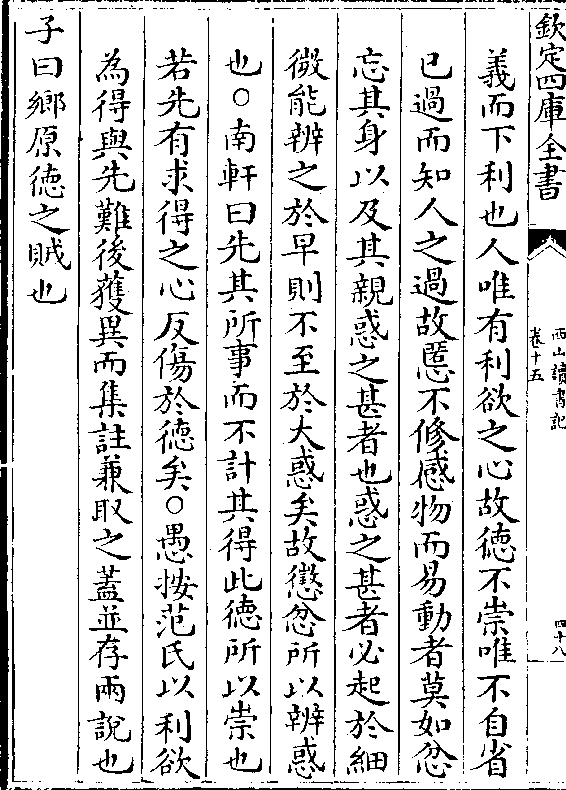 欽定四庫全書
西山讀書記
卷十五
四十八
義而下利也人唯有利欲之心故德不崇唯不自省
已過而知人之過故慝不修感物而易動者莫如忿
忘其身以及其親惑之甚者也惑之甚者必起於細
微能辨之於早則不至於大惑矣故懲忿所以辨惑
也○南軒曰先其所事而不計其得此德所以崇也
若先有求得之心反傷於德矣○愚按范氏以利欲
為得與先難後獲異而集註兼取之蓋並存兩說也
子曰鄉原德之賊也